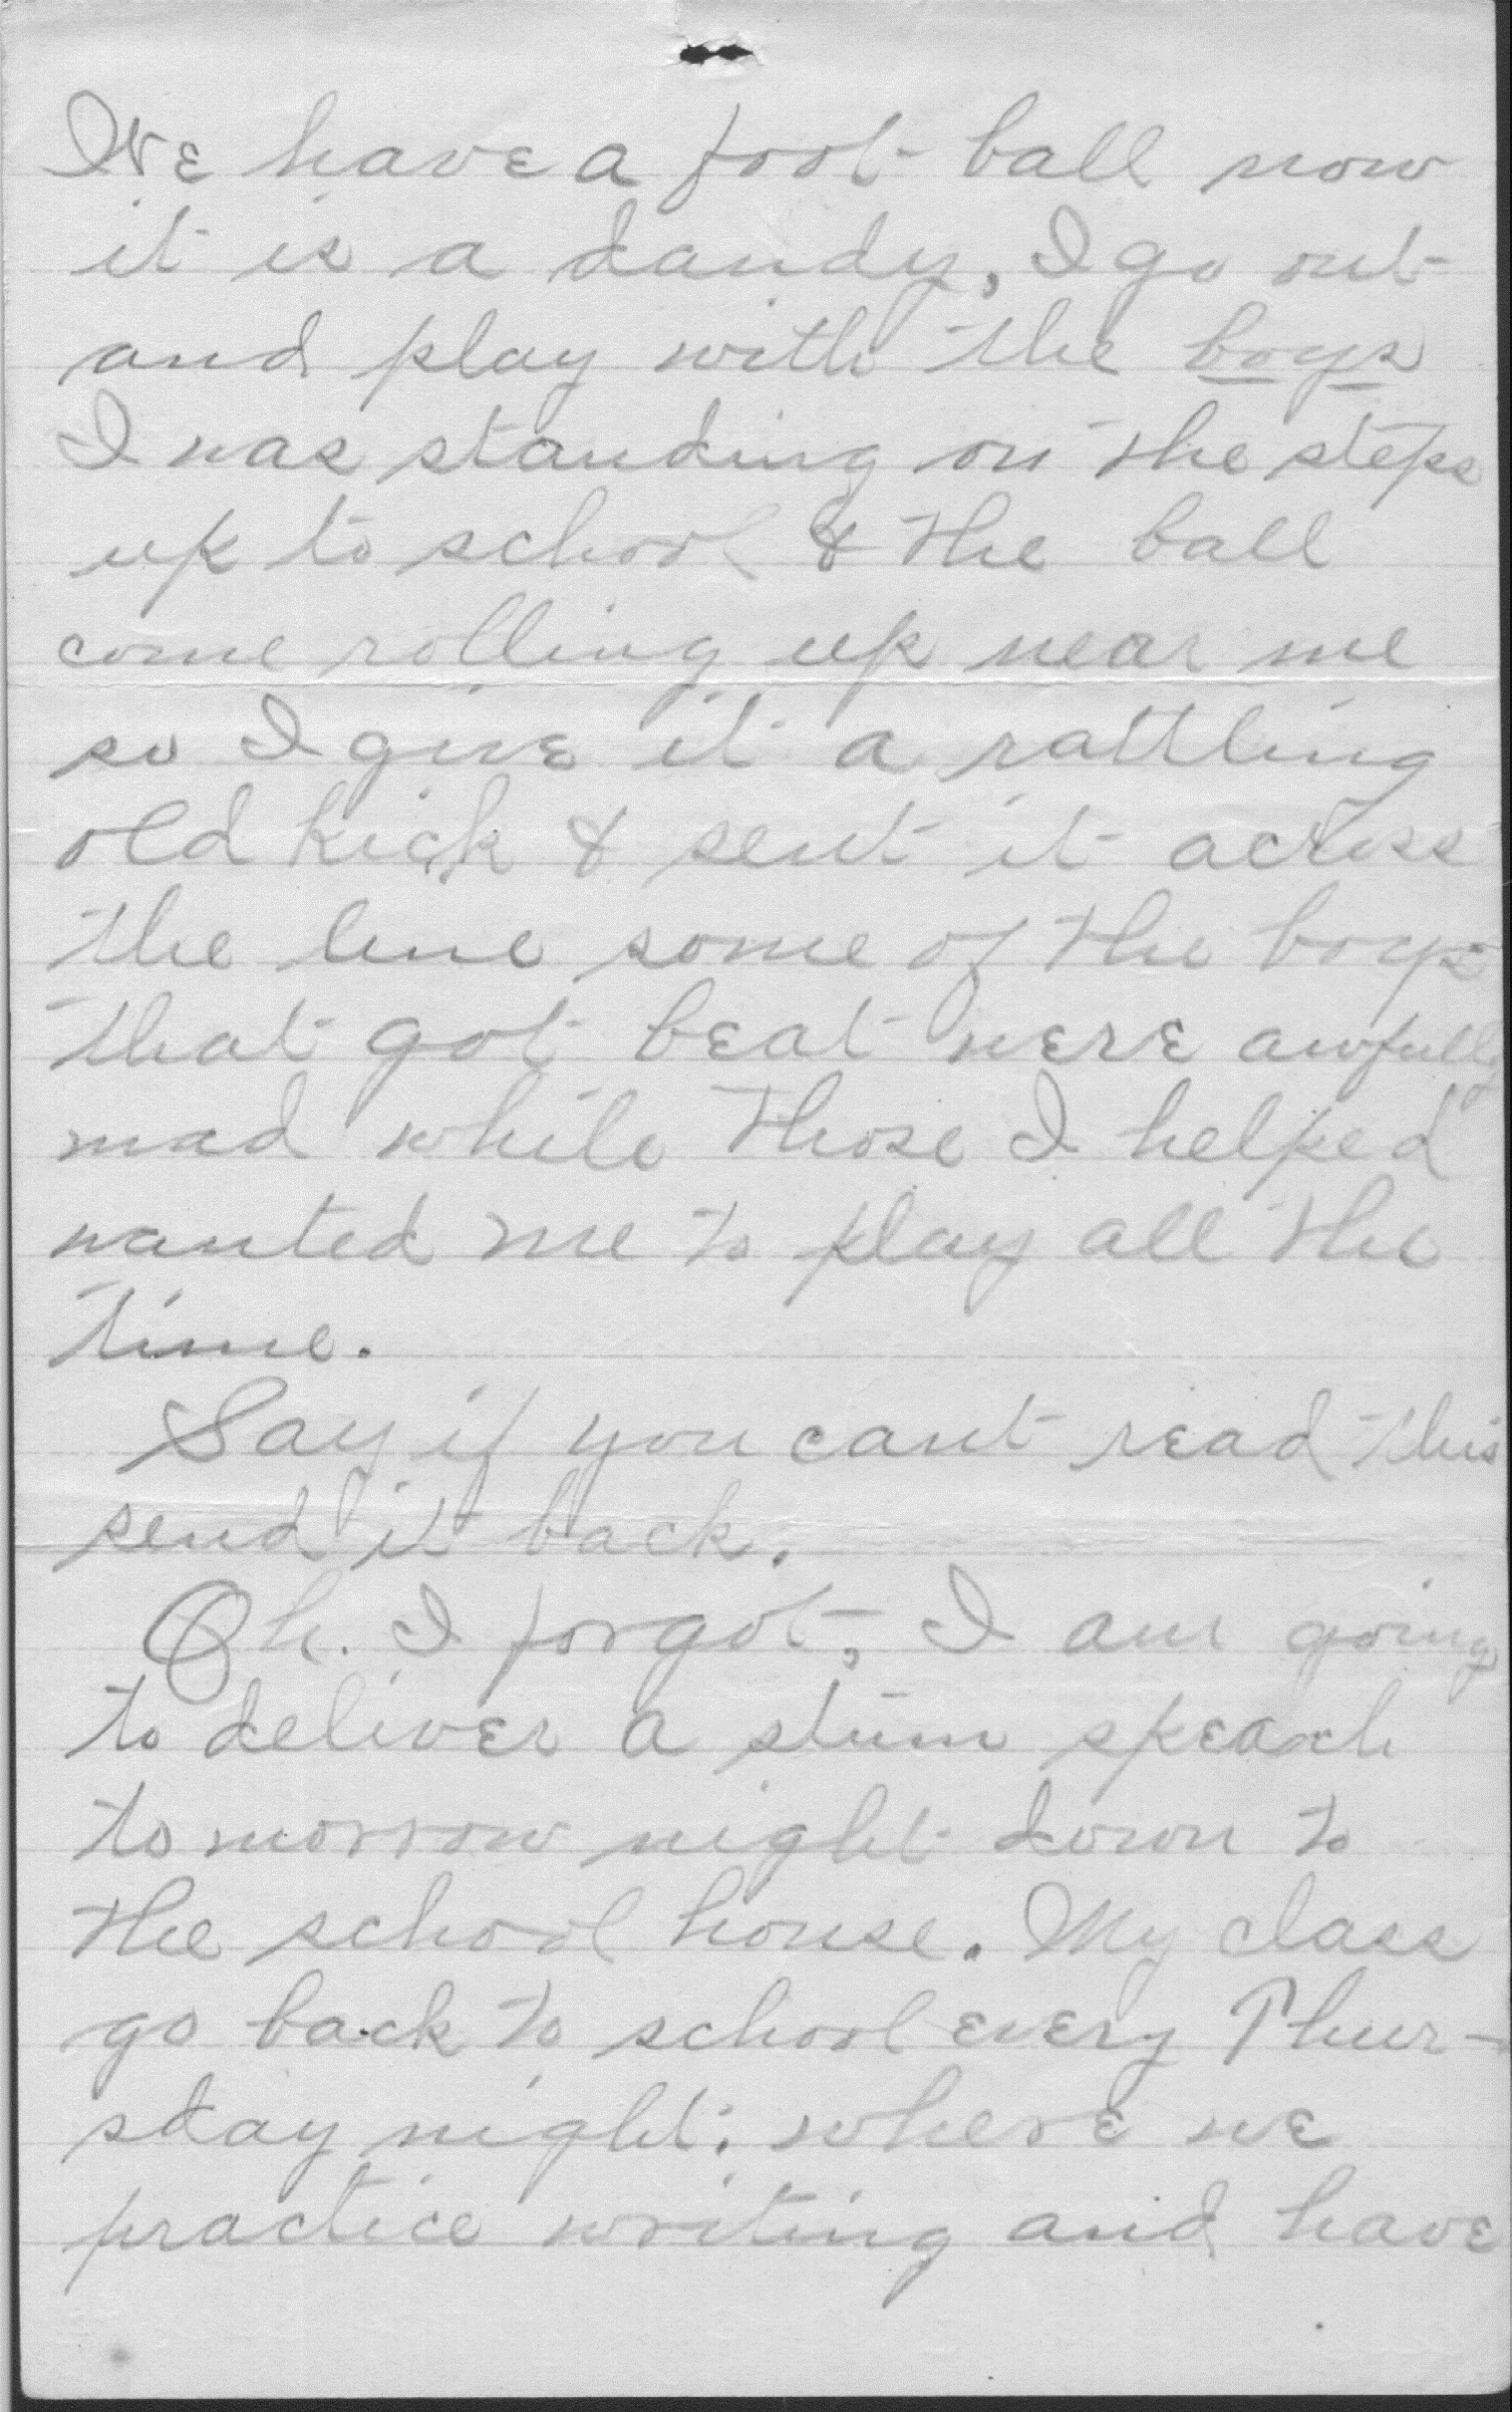 We have a foot ball now
it is a dandy, I go out
and play with the boys
I was standing on the steps
up to school & the ball
come rolling up near me
so I give it a rattling
old kick & sent it across
the line some of the boys
that got beat were awfully
mad while those I helped
wanted me to play all the
time.
Say if you cant read this
send it back.
Oh. I forgot, I am going
to deliver a stum speach
to morrow night down to
the school house. My class
go back to school every Thur-
sday night. where we
practice writing and have